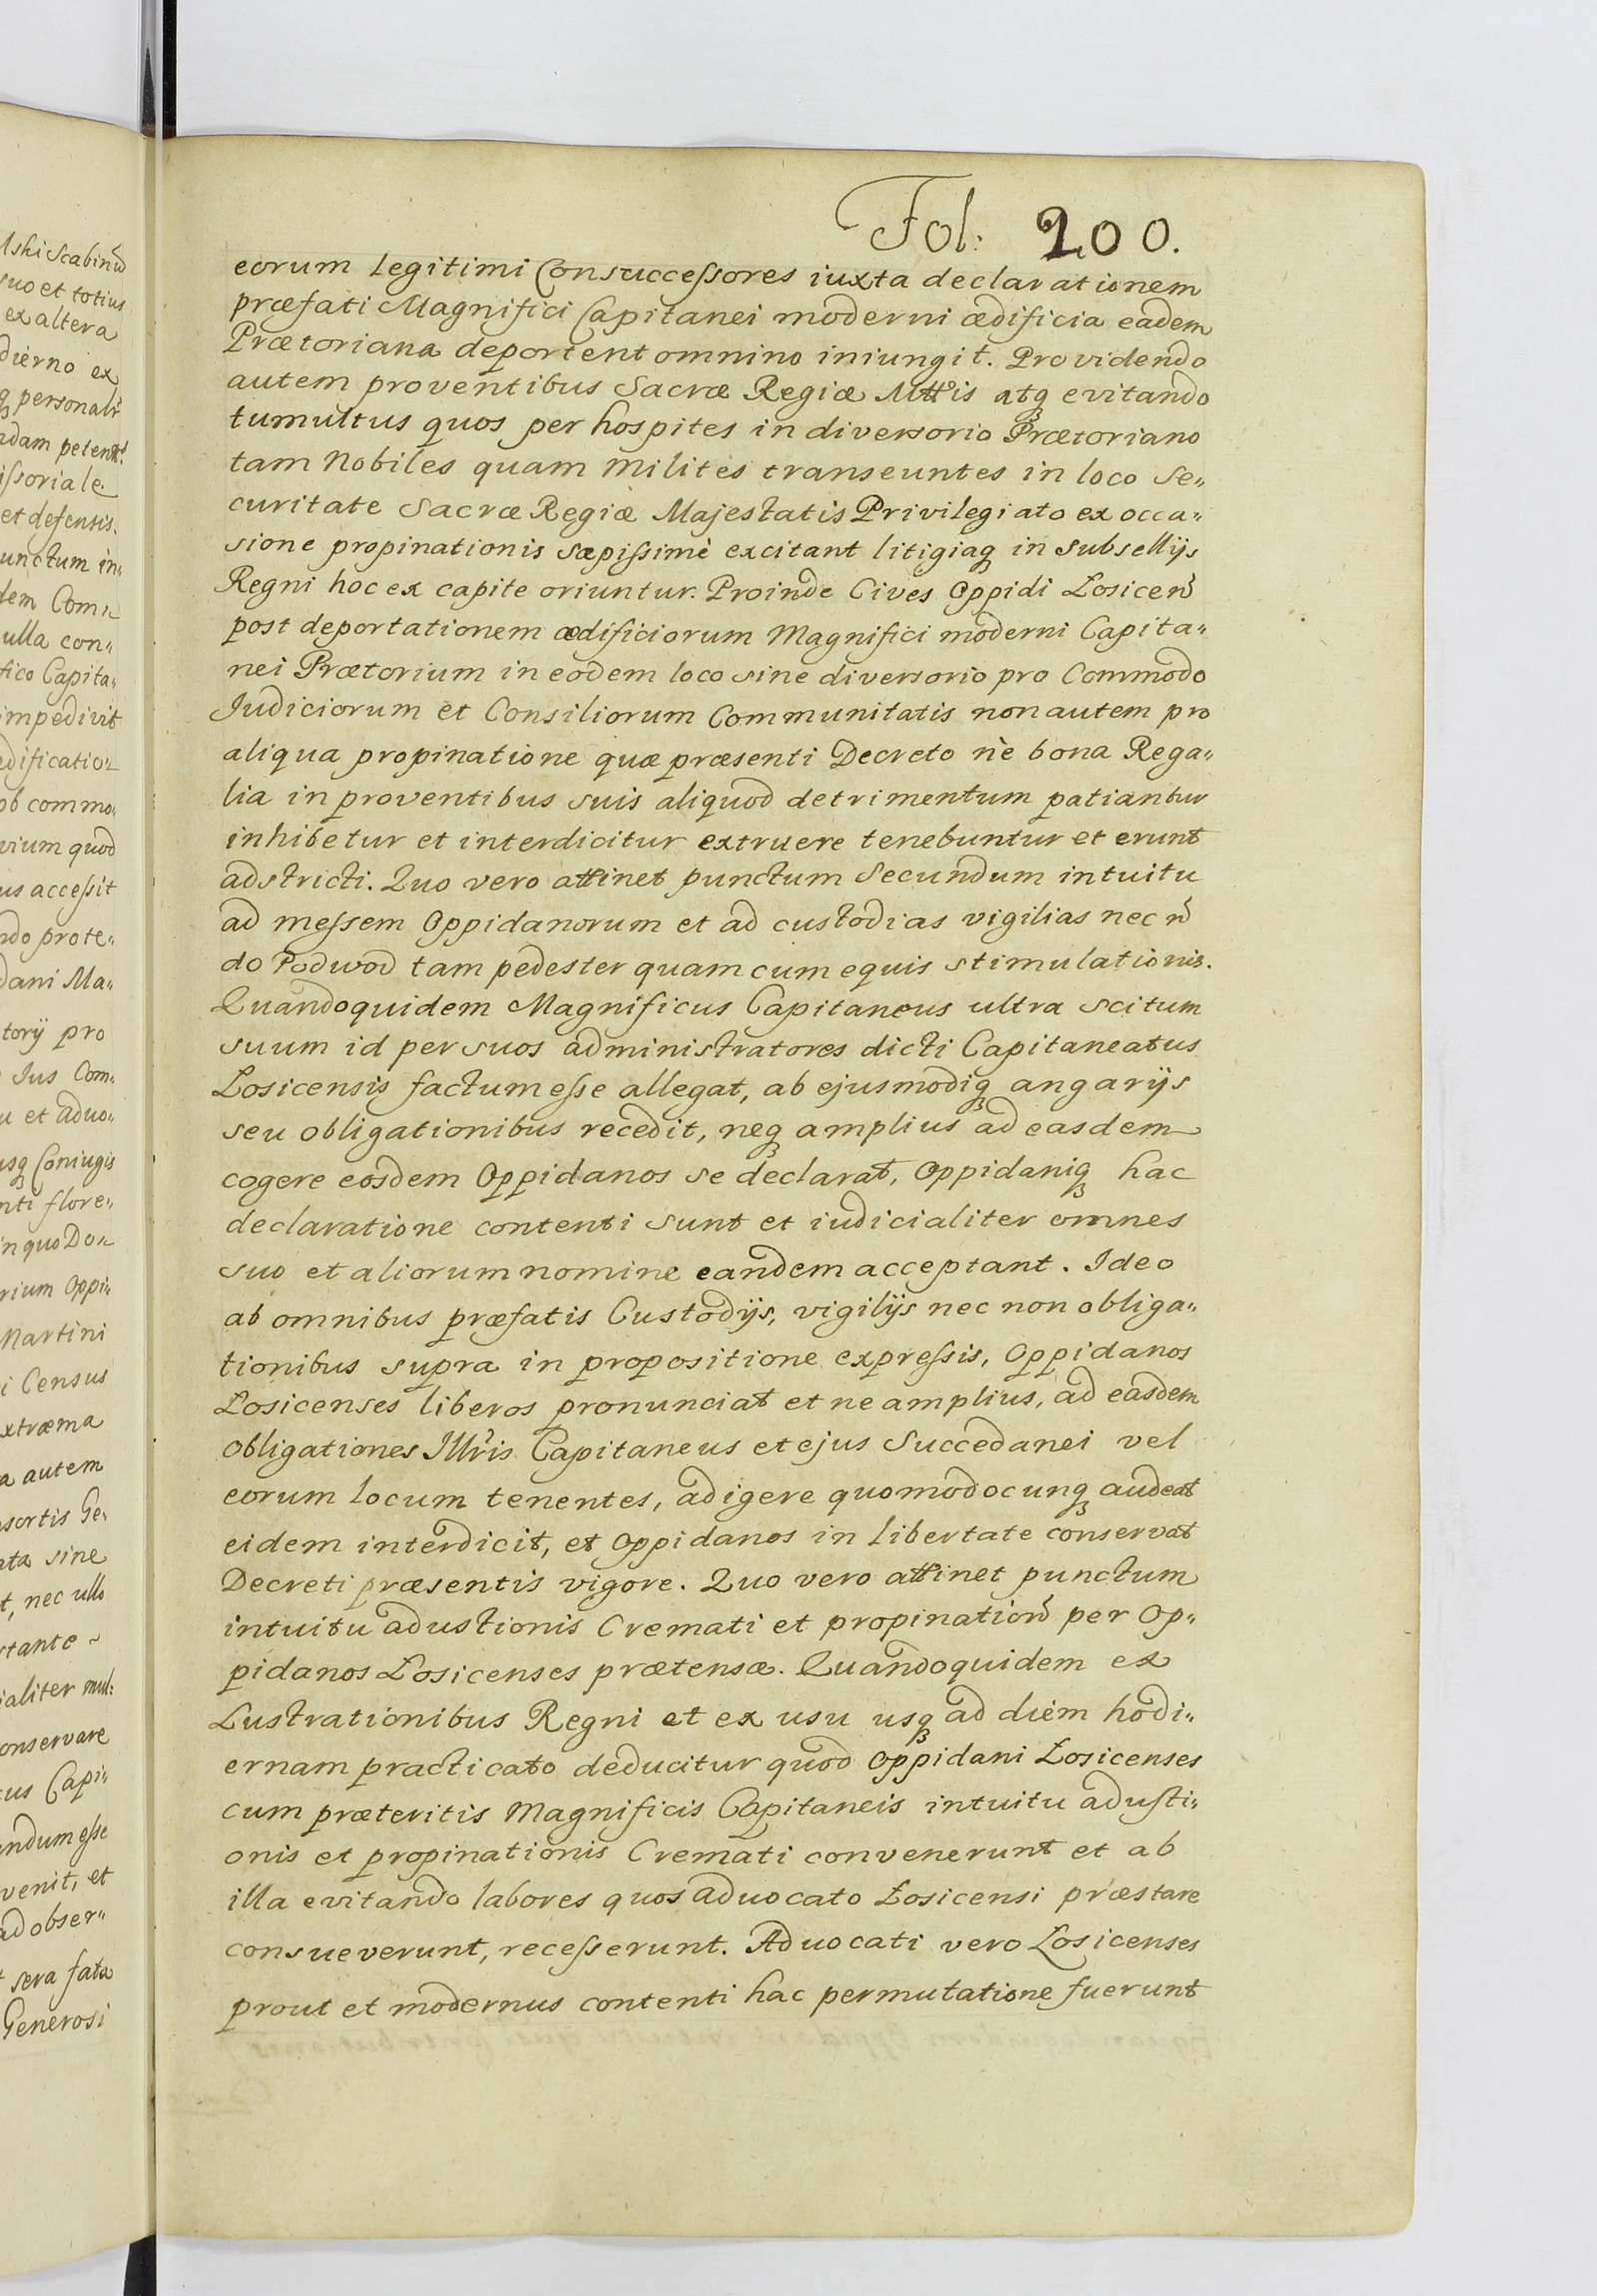 Fol: 200.
eorum legitimi Consuccessores iuxta declarationem
præfati Magnifici Capitanei moderni ædificia eadem
Prætoriana deportent omnino iniungit. Providendo
autem proventibus Sacræ Regiæ Mttis atq evitando
tumultus quos per hospites in diversorio Prætoriano
tam Nobiles quam Milites transeuntes in loco Se„
curitate Sacræ Regiæ Majestatis Privilegiato ex occa„
sione propinationis sæpissimè excitant litigiaq in Subsellijs
Regni hoc ex capite oriuntur. Proinde Cives Oppidi Łosicen̄
post deportationem ædificiorum Magnifici moderni Capita„
nei Prætorium in eodem loco sine diversorio pro Commodo
Judiciorum et Consiliorum Communitatis non autem pro
aliqua propinatione quæ præsenti Decreto nè bona Rega„
lia in proventibus suis aliquod detrimentum patiantur
inhibetur et interdicitur extruere tenebuntur et erunt
adstricti. Quo vero attinet punctum Secundum intuitu
ad messem Oppidanorum et ad custodias vigilias nec n̄
do Podwod tam pedester quam cum equis stimulationis.
Quandoquidem Magnificus Capitaneus ultra scitum
suum id per suos administratores dicti Capitaneatus
Łosicensis factum esse allegat, ab ejusmodiq angarijs
seu obligationibus recedit, neq amplius ad easdem
cogere eosdem Oppidanos se declarat, Oppidaniq hac
declaratione contenti sunt et iudicialiter omnes
suo et aliorum nomine eandem acceptant. Ideo
ab omnibus præfatis Custodijs, vigilijs nec non obliga„
tionibus supra in propositione expressis, Oppidanos
Łosicenses liberos pronunciat et ne amplius, ad easdem
obligationes Illr̄is Capitaneus et ejus Succedanei vel
eorum locum tenentes, adigere quomodocunq audeat
eidem interdicit, et Oppidanos in libertate conservat
Decreti præsentis vigore. Quo vero attinet punctum
intuitu adustionis Cremati et propination̄ per Op„
pidanos Łosicenses prætensæ. Quandoquidem ex
Lustrationibus Regni et ex usu usq ad diem hodi„
ernam practicato deducitur quod Oppidani Łosicenses
cum præteritis Magnificis Capitaneis intuitu adusti„
onis et propinationis Cremati convenerunt et ab
illa evitando labores quos Aduocato Łosicensi præstare
consueverunt, recesserunt. Aduocati vero Łosicenses
prout et modernus contenti hac permutatione fuerunt